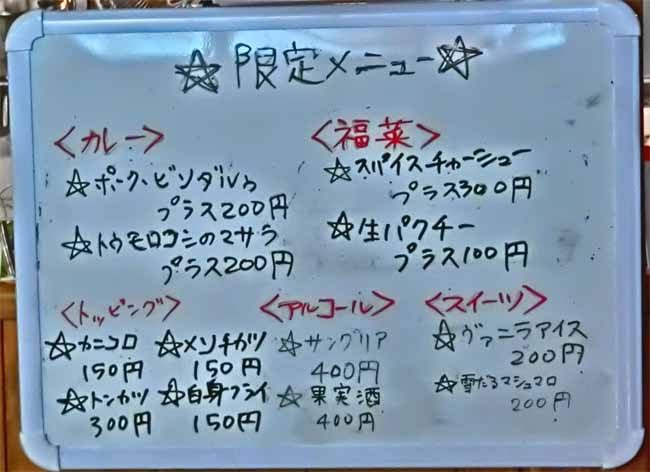 ☆限定メニュー☆
<カレー>
☆ポーク、ビンダルゥ
プラス200円
☆トウモロコシのマサラ
プラス200円
<福菜>
☆スパイスチャーシュー
プラス300円
☆生パクチー
プラス100円
<トッピング>
☆カニコロ
150円
☆メンチカツ
150円
☆トンカツ
300円
☆白身フライ
150円
<アルコール>
☆サングリア
400円
☆果実酒
400円
<スイーツ>
☆ヴァニラアイス
200円
☆雪だるマシュマロ
200円